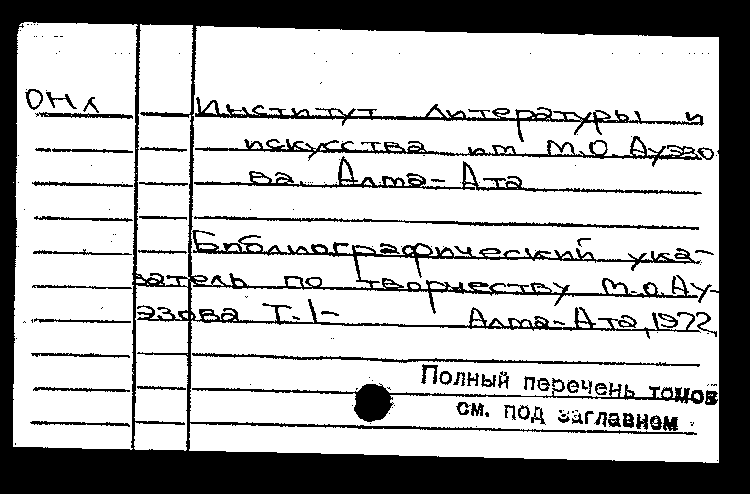 ОНЛ Институт литературы и
искусства им М.О. Ауэзо
ва. Алма-Ата
Библиографический ука-
затель по творчеству М.О. Ау-
эзова Т.1- Алма-Ата, 1972,
Полный перечень томов
см. под заглавием